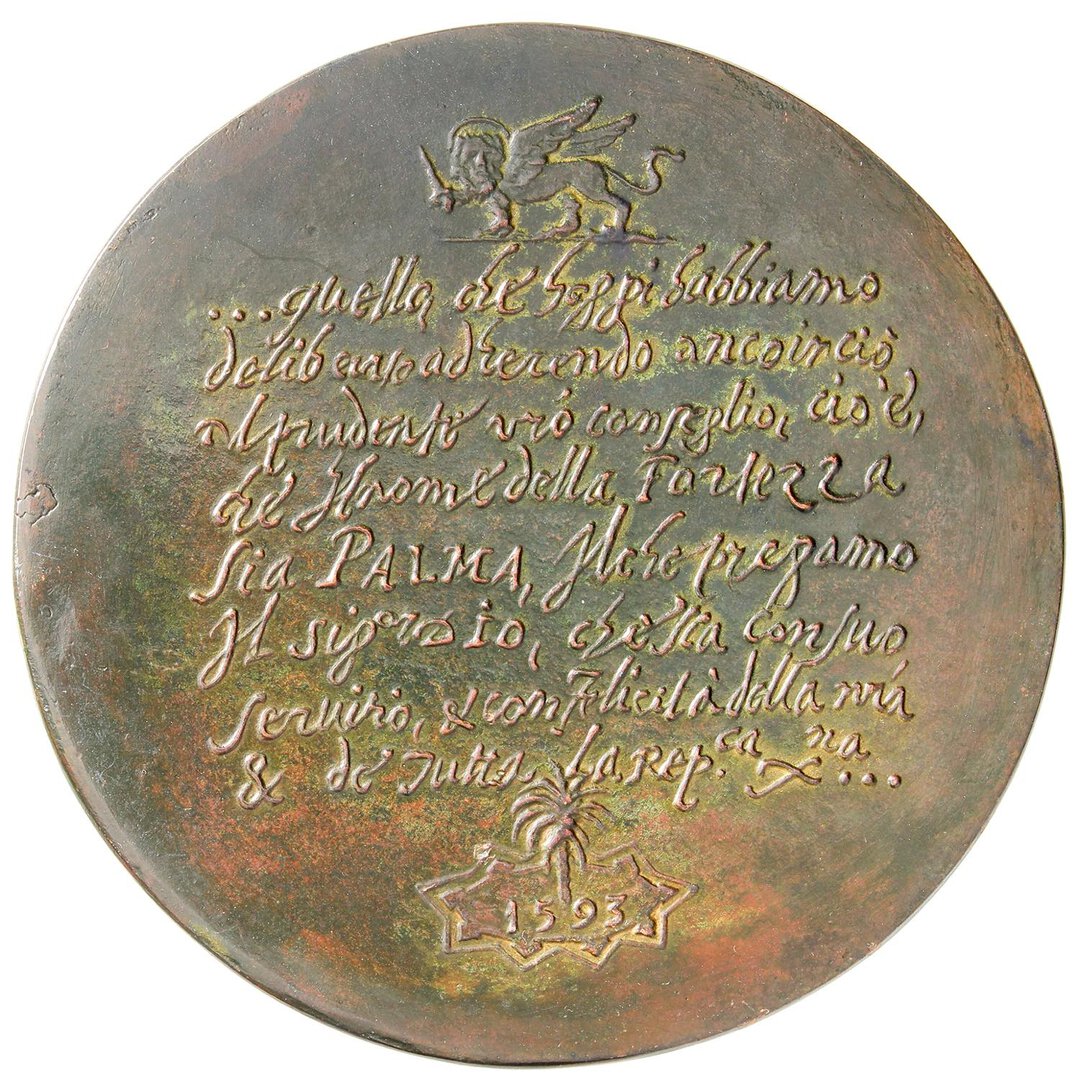 ...quello, che hoggi habbiamo
deliberato adherendo anco in ciò
al prudente vró conseglio, cio è,
che Il nome della Fortezza
sia PALMA, Il che pregamo
Il sigor Dio, che sia con suo
servitio, & con Felicità della nrá
& de tutta la rep.ca na...
1593